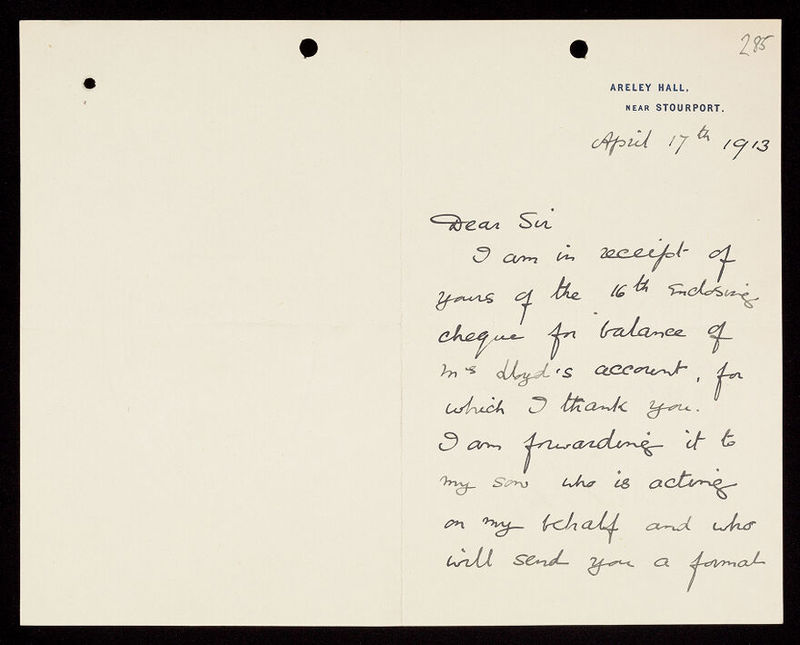 285
ARELEY HALL,
NEAR STOURPORT.
April 17th 1913
Dear Sir
I am in receipt of
yours of the 16th enclosing
cheque for balance of
Mrs Lloyd's account, for
which I thank you.
I am forwarding it to
my son who is acting
on my behalf and who
will send you a formal